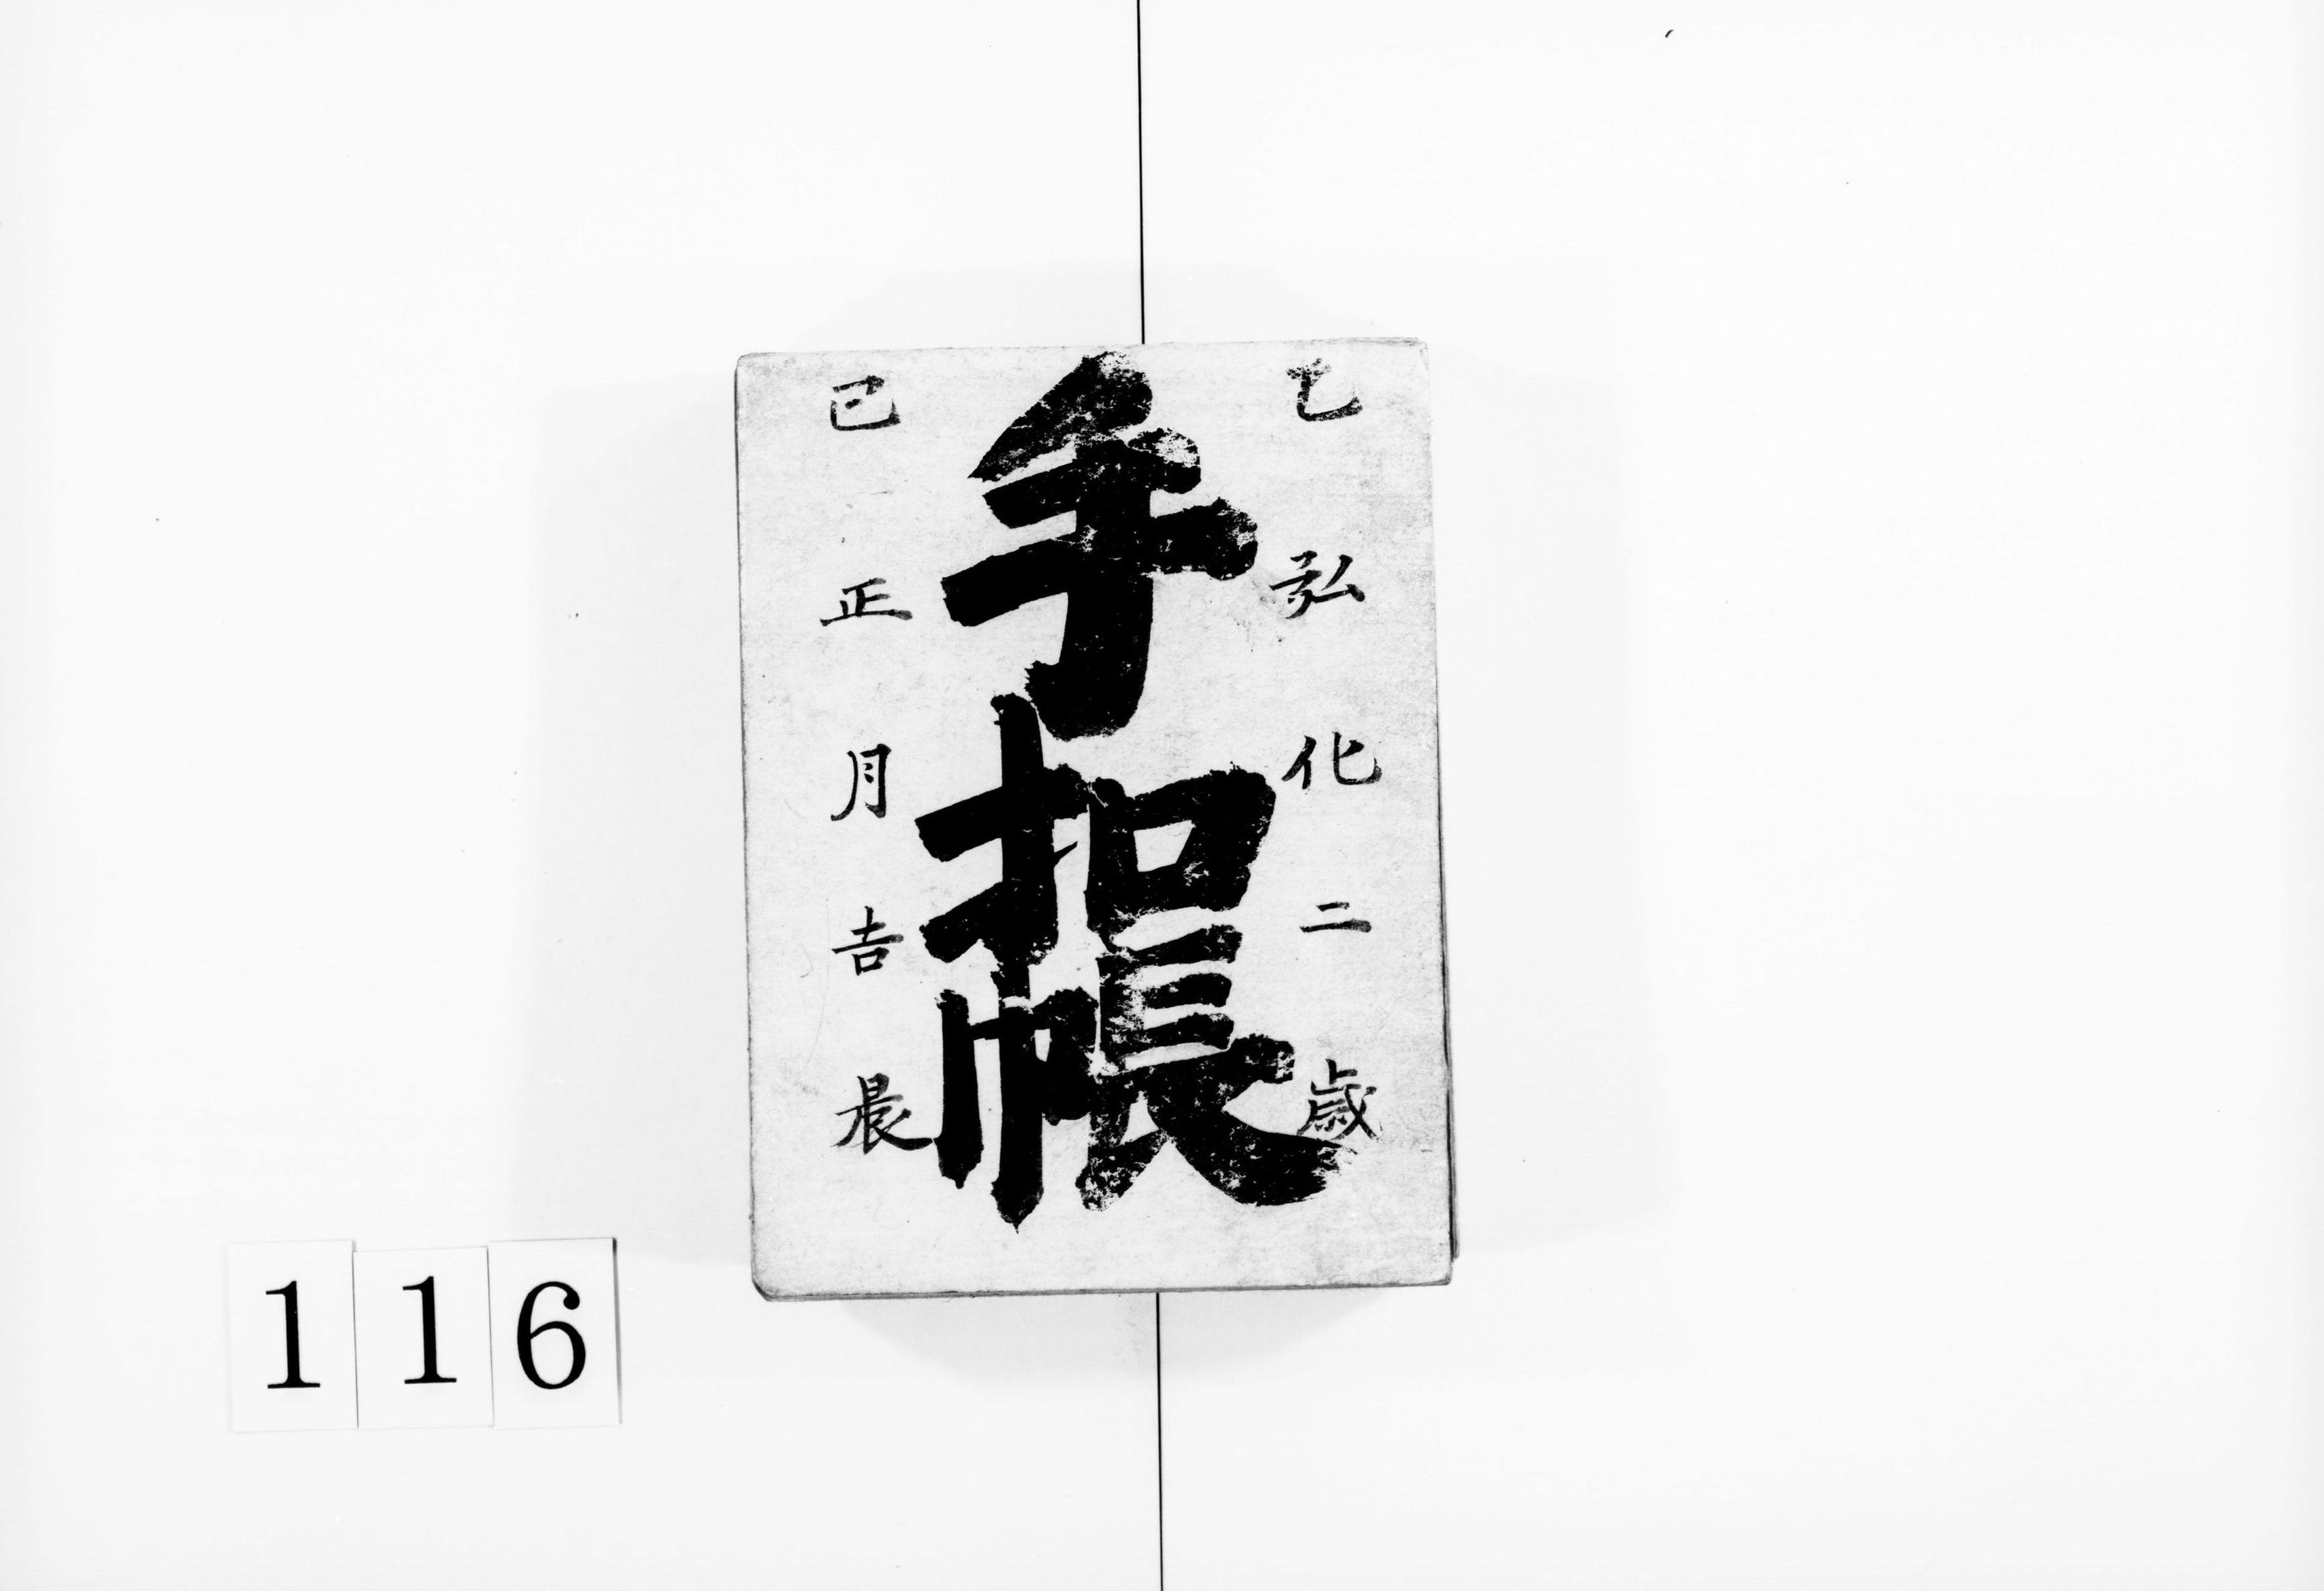 乙弘化二歳
手扣帳
巳正月吉晨
116